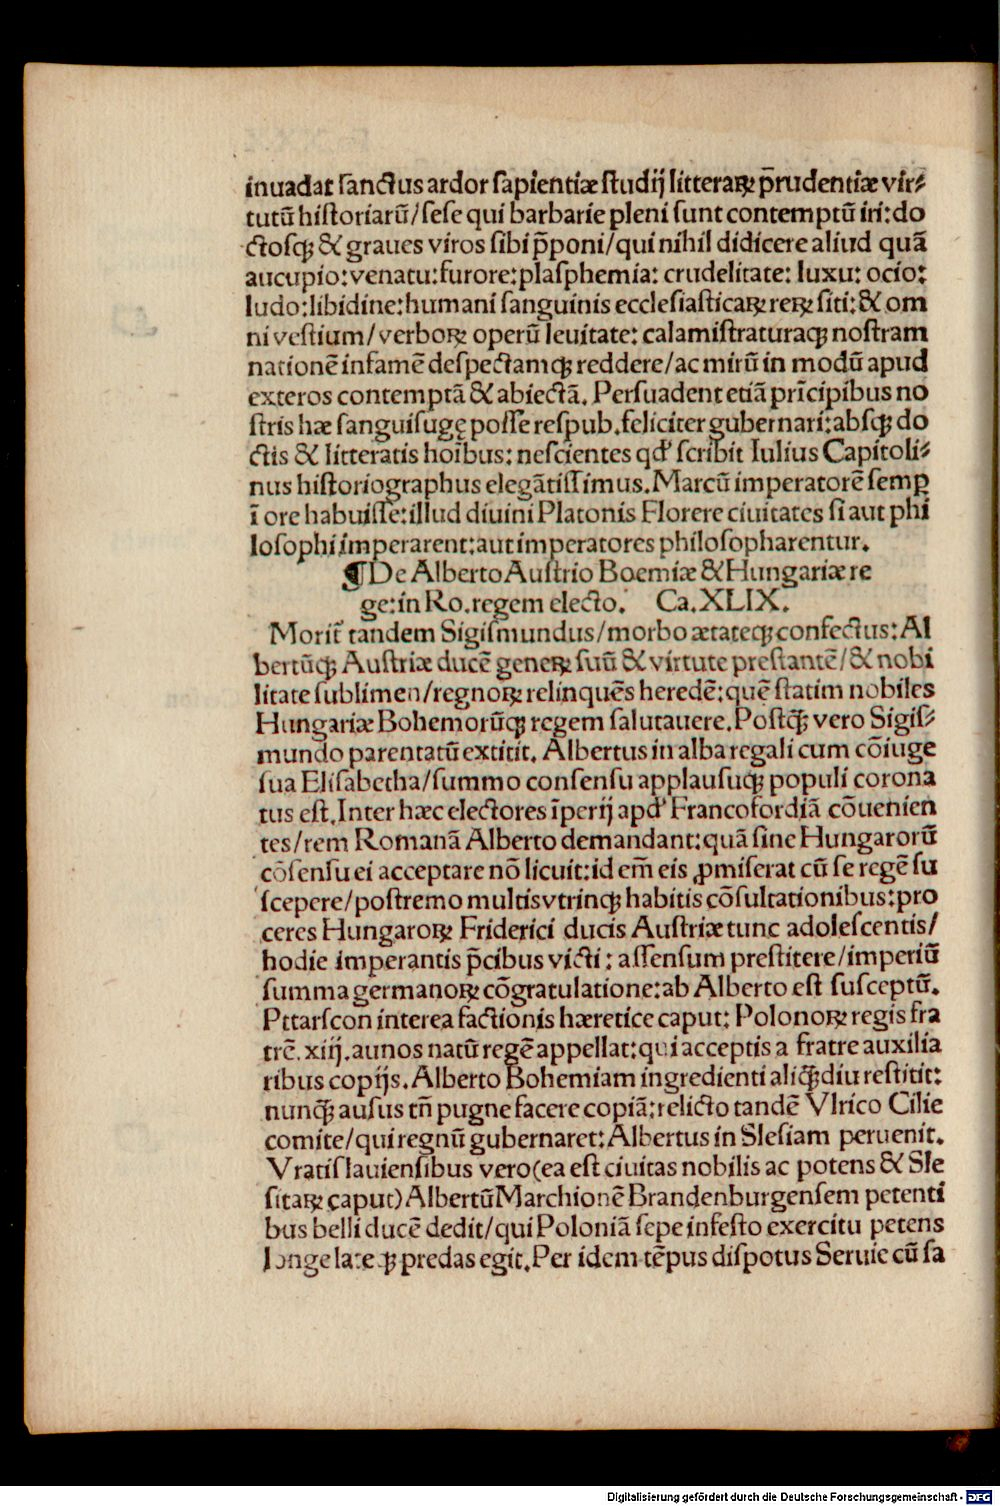 inuadat ſanctus ardor ſapientiæ ſtudij litteraꝝ p̄rudentiæ vir⸗
tutū hiſtoriarū/ſeſe qui barbarie pleni ſunt contemptū iri:do
ctoſqꝫ & graues viros ſibi p̄poni/qui nihil didicere aliud quā
aucupio:venatu:furore:plaſphemia: crudelitate: luxu: ocio:
ludo:libidine:humani ſanguinis eccleſiaſticaꝝ reꝝ ſiti:& om
ni veſtium/verboꝝ operū leuitate: calamiſtraturaqꝫ noſtram
nationē infamē deſpectamqꝫ reddere/ac mirū in modū apud
exteros contemptā & abiectā. Perſuadent etiā pr̄icipibus no
ſtris hæ ſanguiſugę poſſe reſpub.feliciter gubernari:abſqꝫ do
ctis & litteratis hoībus: neſcientes qd' ſcribit Iulius Capitoli⸗
nus hiſtoriographus elegātiſſimus.Marcū imperatorē ſemꝑ
ī ore habuiſſe:illud diuini Platonis Florere ciuitates ſi aut phi
loſophi imperarent:aut imperatores philoſopharentur.
¶De Alberto Auſtrio Boemiæ & Hungariæ re
ge:in Ro.regem electo. Ca.XLIX.
Morit̄ tandem Sigiſmundus/morbo ætateqꝫ confectus:Al
bertūqꝫ Auſtriæ ducē geneꝝ ſuū & virtute preſtantē/& nobi
litate ſublimen/regnoꝝ relinquēs heredē:quē ſtatim nobiles
Hungariæ Bohemorūqꝫ regem ſalutauere.Poſtqꝫ̄ vero Sigiſ⸗
mundo parentatū extitit. Albertus in alba regali cum cōiuge
ſua Eliſabetha/ſummo conſenſu applauſuqꝫ populi corona
tus eſt.Inter hæc electores īperij apd' Francofordiā cōuenien
tes/rem Romanā Alberto demandant:quā ſine Hungarorū
cōſenſu ei acceptare nō licuit:id em̄ eis ꝓmiſerat cū ſe regē ſu
ſcepere/poſtremo multis vtrinqꝫ habitis cōſultationibus:pro
ceres Hungaroꝝ Friderici ducis Auſtriæ tunc adoleſcentis/
hodie imperantis p̄cibus victi: aſſenſum preſtitere/imperiū
ſumma germanoꝝ cōgratulatione:ab Alberto eſt ſuſceptū.
Pttarſcon interea factionis hæretice caput: Polonoꝝ regis fra
trē. xiij.aunos natū regē appellat:qui acceptis a fratre auxilia
ribus copijs.Alberto Bohemiam ingredienti aliqꝫ̄diu reſtitit:
nunqꝫ̄ auſus tn̄ pugne facere copiā:relicto tandē Vlrico Cilie
comite/qui regnū gubernaret:Albertus in Sleſiam peruenit.
Vratiſlauienſibus vero(ea eſt ciuitas nobilis ac potens & Sle
ſitaꝝ caput)Albertū Marchionē Brandenburgenſem petenti
bus belli ducē dedit/qui Poloniā ſepe infeſto exercitu petens
longe lateqꝫ predas egit.Per idem tēpus diſpotus Seruie cū ſa
Digitalisierung gefördert durch die Deutsche Forschungsgemeinschaft - DFG